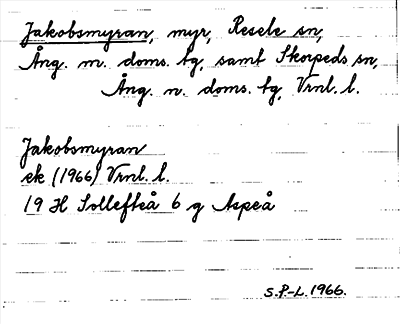 Jakobsmyran, myr, Resele sn,
Ång. m. doms. tg, samt Skorpeds sn,
Ång. n. doms. tg, Vrnl. l.
Jakobsmyran
ek (1966) Vrnl. l.
19 H Sollefteå 6 g Aspeå
S.P-L. 1966.